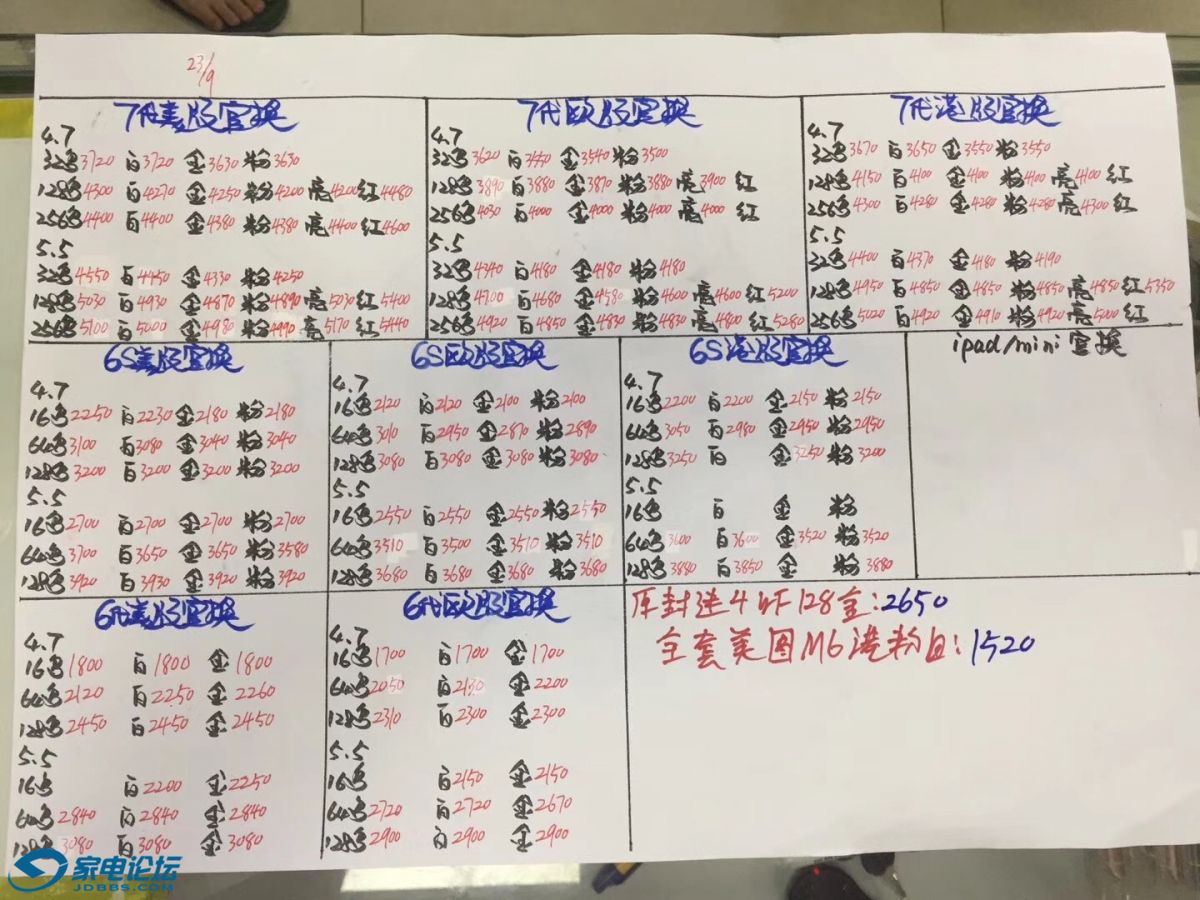 23/9
7代美版官换
4.7
32乌3720 白3720 金3630 粉3630
128乌4300 白4270 金4250 粉4200 亮4200 红4480
256乌4400 白4400 金4380 粉4380 亮4400 红4600
5.5
32乌4550 白4450 金4330 粉4250
128乌5030 白4930 金4870 粉4890 亮5030 红5400
256乌5100 白5000 金4980 粉4990 亮5170 红5440
7代欧版官换
4.7
32乌3620 白3550 金3540 粉3500
128乌3890 白3880 金3870 粉3880 亮3900 红
256乌4030 白4000 金4000 粉4000 亮4000 红
5.5
32乌4340 白4180 金4180 粉4180
128乌4700 白4680 金4580 粉4600 亮4600 红5200
256乌4920 白4850 金4830 粉4830 亮4800 红5280
7代港版官换
4.7
32乌3670 白3650 金3550 粉3550
128乌4150 白4100 金4100 粉4100 亮4100 红
256乌4300 白4280 金4280 粉4280 亮4300 红
5.5
32乌4400 白4370 金4180 粉4190
128乌4950 白4850 金4850 粉4850 亮4850 红5350
256乌5020 白4920 金4910 粉4920 亮5000 红
6S美版官换
4.7
16乌2250 白2230 金2180 粉2180
64乌3100 白3080 金3040 粉3040
128乌3200 白3200 金3200 粉3200
5.5
16乌2700 白2700 金2700 粉2700
64乌3700 白3650 金3650 粉3580
128乌3920 白3930 金3920 粉3920
6S欧版官换
4.7
16乌2120 白2120 金2100 粉2100
64乌3010 白2950 金2870 粉2890
128乌3080 白3080 金3080 粉3080
5.5
16乌2550 白2550 金2550 粉2550
64乌3510 白3500 金3510 粉3510
128乌3680 白3680 金3680 粉3680
6S港版官换
4.7
16乌2200 白2200 金2150 粉2150
64乌3050 白2980 金2950 粉2950
128乌3250 白 金3250 粉3200
5.5
16乌 白 金 粉
64乌3600 白3600 金3520 粉3520
128乌3880 白3850 金 粉3880
ipad/mini官换
6代美版官换
4.7
16乌1800 白1800 金1800
64乌2120 白2250 金2260
128乌2450 白2450 金2450
5.5
16乌 白2200 金2250
64乌2840 白2840 金2840
128乌3080 白3080 金3080
6代欧版官换
4.7
16乌1700 白1700 金1700
64乌2050 白2130 金2200
128乌2310 白2300 金2300
5.5
16乌 白2150 金2150
64乌2720 白2720 金2670
128乌2900 白2900 金2900
原封迷4 wf 128金:2650
全套美图M6港粉白:1520
家电论坛
JDBBS.COM